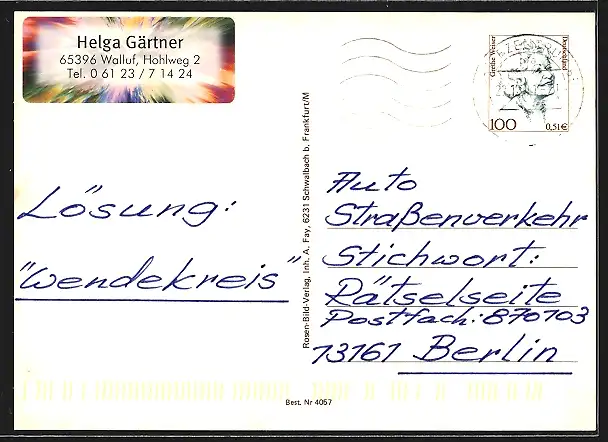 Helga Gärtner
65396 Walluf, Hohlweg 2
Tel. 0 61 23 / 7 14 24
Lösung:
"Wendekreis"
Rosen-Bild-Verlag, Inh. A. Fay, 6231 Schwalbach b. Frankfurt/M
Grethe Weiser
Deutschland
100
0,51€
Auto
Straßenverkehr
Stichwort:
Rätselseite
Postfach: 870103
13161 Berlin
Best. Nr 4057